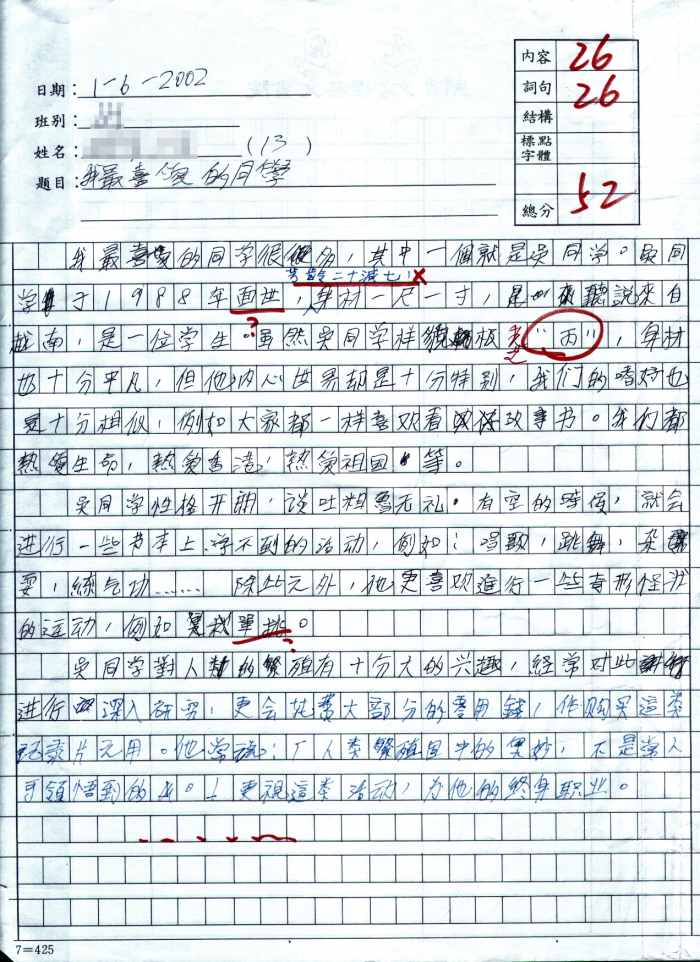 日期：1-6-2002
班別：
姓名：(13)
題目：我最喜爱的同學
內容 26
詞句 26
結構
標點字體
總分 52
我最喜爱的同学很多，其中一個就是吳同学。吳同
芳龄二十減七！
学於1988年面世，身材一尺一寸，是聽說來自
越南，是一位学生。雖然吳同学样貌板老"丙"，身材
也十分平凡，但他内心世界却是十分特别，我们的嗜好也
是十分相似，例如大家都一样喜欢看故事书。我们都
热爱生命，热爱香港，热爱祖国等。
吳同学性格开朗，谈吐粗鲁无礼。有空的時候，就会
进行一些书本上学不到的活动，例如：唱歌，跳舞，杂
耍，練气功……除此之外，他更喜欢進行一些奇形怪状
的运动，例如找單挑。
吳同学對人類的繁殖有十分大的兴趣，經常对此
进行深入研究，更会花費大部分的零用錢，作购买這类
纪录片之用。他常說：「人类繁殖当中的奥妙，不是常人
可領悟到的。」更視這类活动，为他的終身职业。
7=425